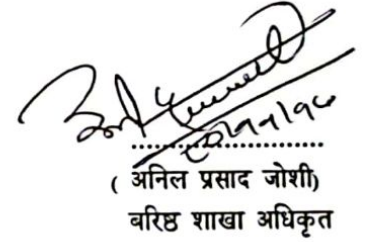 ....................
( अनिल प्रसाद जोशी)
बरिष्ठ शाखा अधिकृत